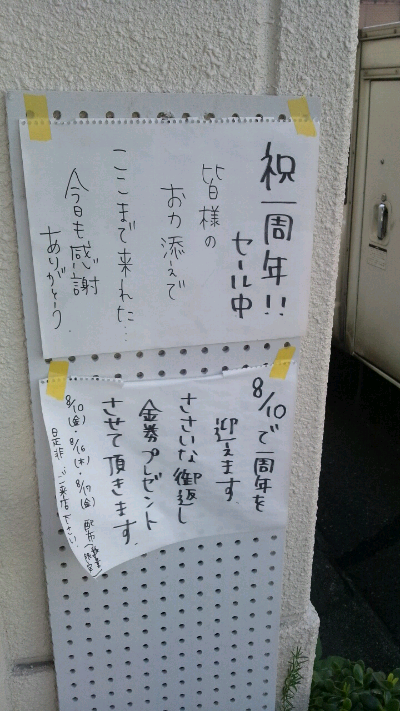 祝一周年!!
セール中
皆様の
お力添えで
ここまで来れた…
今日も感謝
ありがとう
8/10で一周年を
迎えます
ささいな御返し
金券プレゼント
させて頂きます
8/10(金)・8/16(木)・8/17(金) 配布
是非ご来店下さい